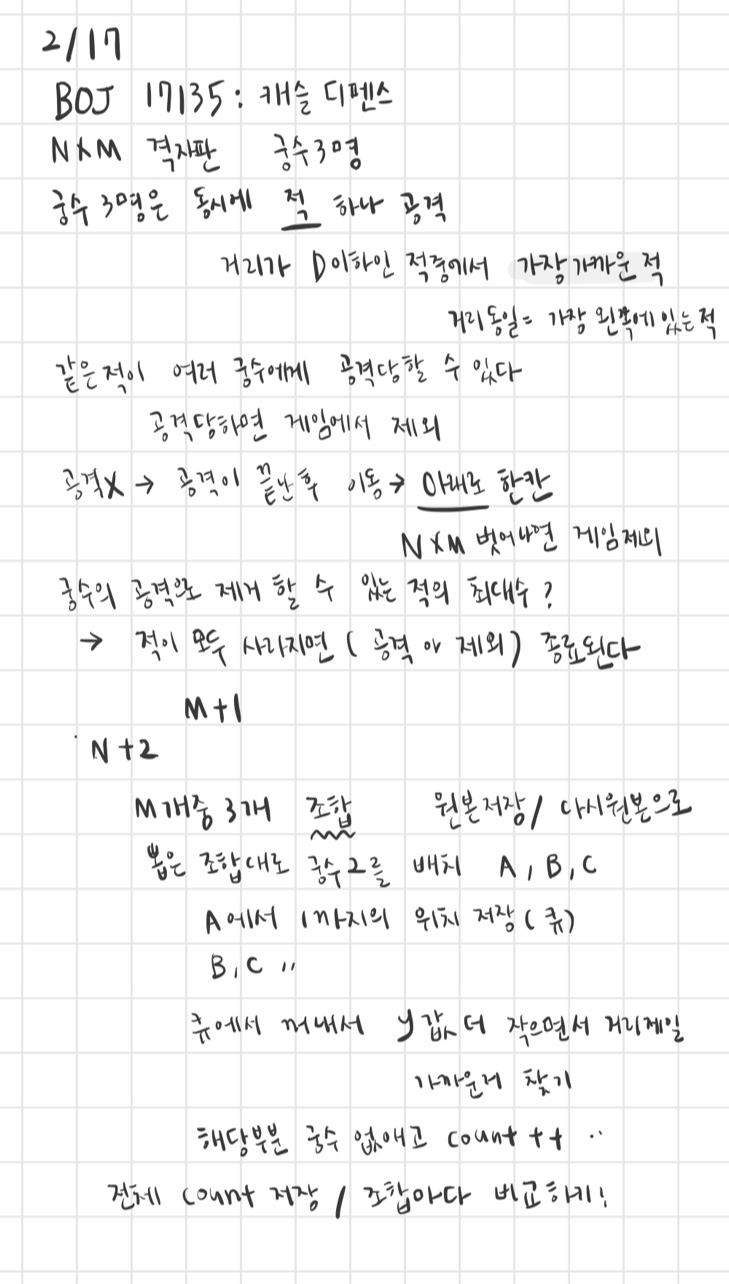 2/17
BOJ 17135 : 캐슬 디펜스
NXM 격자판 궁수3명
궁수 3명은 동시에 적 하나 공격
거리가 D이하인 적중에서 가장가까운 적
거리동일= 가장 왼쪽에 있는적
같은적이 여러 궁수에게 공격당할 수 있다
공격당하면 게임에서 제외
공격X → 공격이 끝난후 이동→ 아래로 한칸
NXM 벗어나면 게임제외
궁수의 공격으로 제거 할 수 있는 적의 최대수?
→ 적이 모두 사라지면 ( 공격 or 제외) 종료된다
M+1
N+2
M개중 3개 조합 원본저장/ 다시원본으로
뽑은 조합대로 궁수2를 배치 A, B, C
A에서 1까지의 위치 저장 (큐)
B, C 〃
큐에서 꺼내서 y값 더 작으면서 거리제일
가까운거 찾기
해당부분 궁수 없애고 count ++ ..
전체 count 저장 / 조합마다 비교하기!